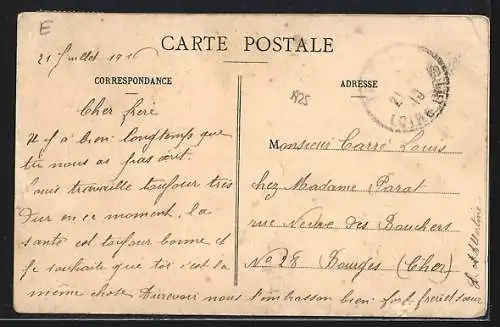 E
21 Juillet 191
CARTE POSTALE
CORRESPONDANCE
ADRESSE
N25
Cher frère
Il y a bien longtemps que
tu nous as pas écrit.
Louis travaille toujour très
dur en ce moment, la
santé est toujour bonne et
je souhaite que toi c'est la
même chose Aurevoir nous t'embrasson bien fort frère et sœur
Monsieur Carré Louis
chez Madame Parat
rue Neuve des Bouchers
No 28 Bourges (Cher)